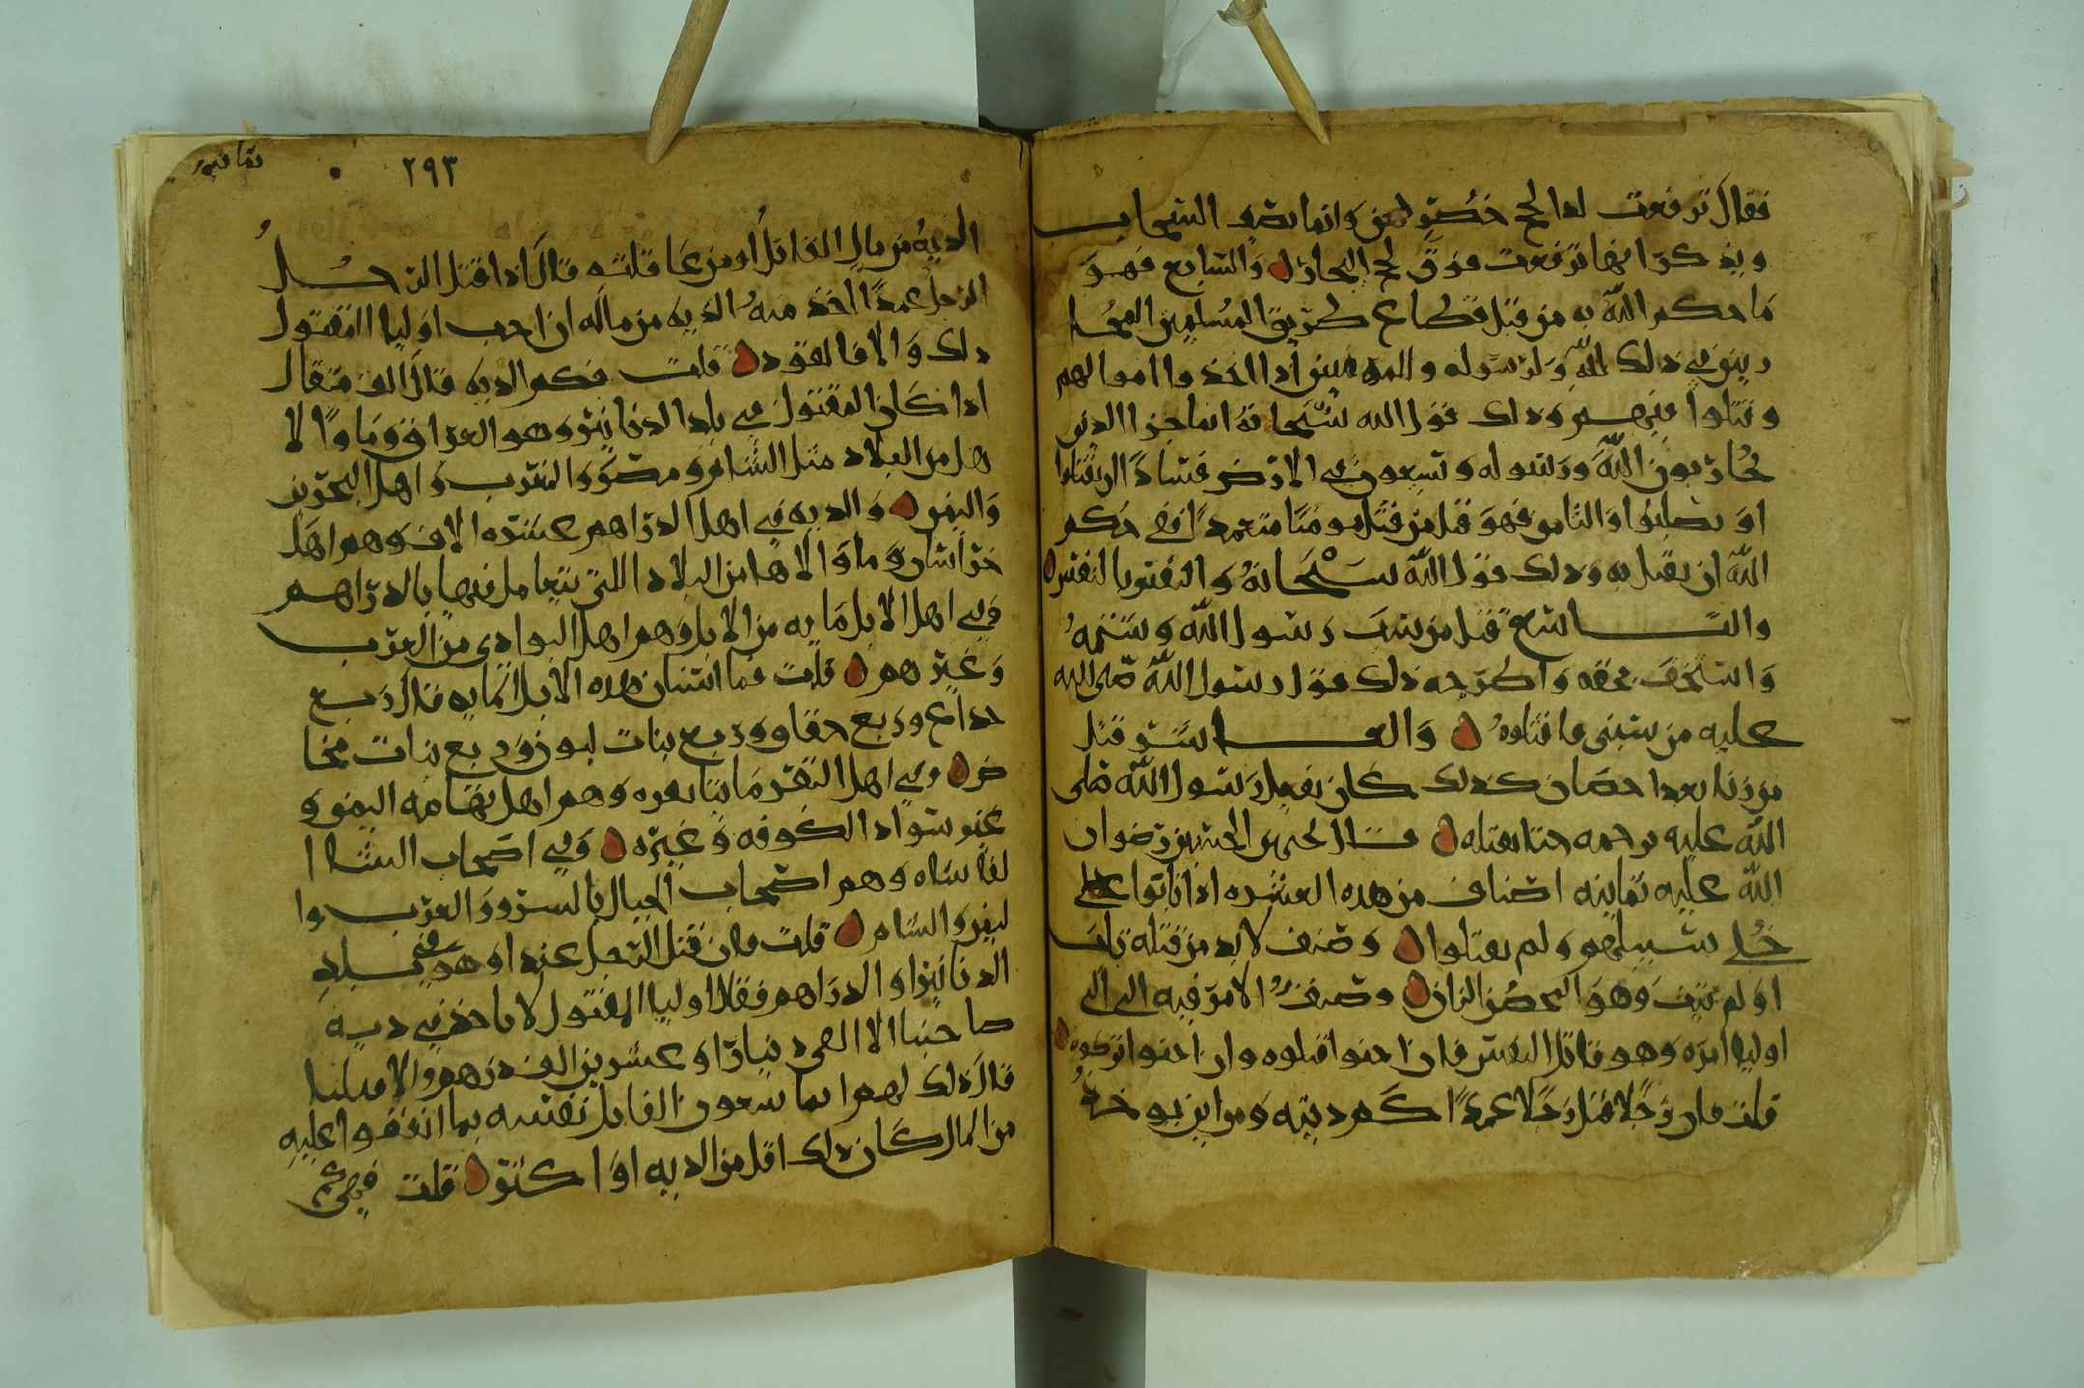 فقال ترفعت لدا لجج خضر لهن وانما يصف السحاب
ويذكر انها ترفعت فوق لجج البحار والسابع فهو
ما حكم الله به من قتل قطاع طريق المسلمين المحا
ربين في ذلك لله ولرسوله والمومنين اذا اخذوا اموالهم
وقتلوا فيهم وذلك قول الله سبحانه انما جزا الدين
يحاربون الله ورسوله ويسعون في الارض فسادا ان يقتلوا
او يصلبوا والثامن فهو قتل من قتل مومنا متعمدا ففي حكم
الله ان يقتل به وذلك قول الله سبحانه والنفس بالنفس
والتاسع قتل من سب رسول الله وشتمه
واستخف بحقه واطرحه وذلك قول رسول الله صلى الله
عليه من سبني فاقتلوه والعاشر قتل
من زنا بعد احصان كذلك كان يفعل رسول الله صلى
الله عليه يرجمه حتا يقتله قال يحيى بن الحسين رضوان
الله عليه ثمانية اصناف من هذه العشرة اذا تابوا
خلي سبيلهم ولم يقتلوا وصنف لابد من قتله تاب
او لم يتب وهو المحصن الزان وصنف الامر فيه الى
اوليا امره وهو قاتل النفس فان احبوا قتلوه وان احبوا تركوه
قلت فان رجلا قتل رجلا عمدا كم ديته ومن اين يوخذ
٢٩٣
الدية من مال القاتل او من عاقلته قال اذا قتل الرجل
الرجل عمدا اخذ منه الدية من ماله ان احب اوليا المقتول
ذلك والا فالقود قلت فكم الدية قال الف مثقال
اذا كان المقتول في بلد الدنانير وهو العراق وما والا
ها من البلاد مثل الشام ومصر والمغرب واهل البحرين
واليمن والدية في اهل الدراهم عشرة الاف وهم اهل
خراسان وما والاها من البلاد اللتي يتعامل فيها بالدراهم
وفي اهل الابل مايه من الابل وهم اهل البوادي من العرب
وغيرهم قلت فما اسنان هذه الابل المايه قال ربع
جذاع وربع حقاق وربع بنات لبون وربع بنات مخا
ض وفي اهل البقر مائتا بقره وهم اهل تهامه اليمن و
غير سواد الكوفه وغيره وفي اصحاب الشا ا
لفا شاه وهم اصحاب الجبال بالسرو والعرب وا
ليمن والشام قلت فان قتل الرجل عمدا وهو في بلد
الدنانير او الدراهم فقال اوليا المقتول لا ناخذ في دية
صاحبنا الا الفي دينار او عشرين الف درهم والا قتلنا
قال ذلك لهم انما يبيعون القاتل نفسه بما اتفقوا عليه
من المال كان ذلك اقل من الدية او اكثر قلت ففي كم